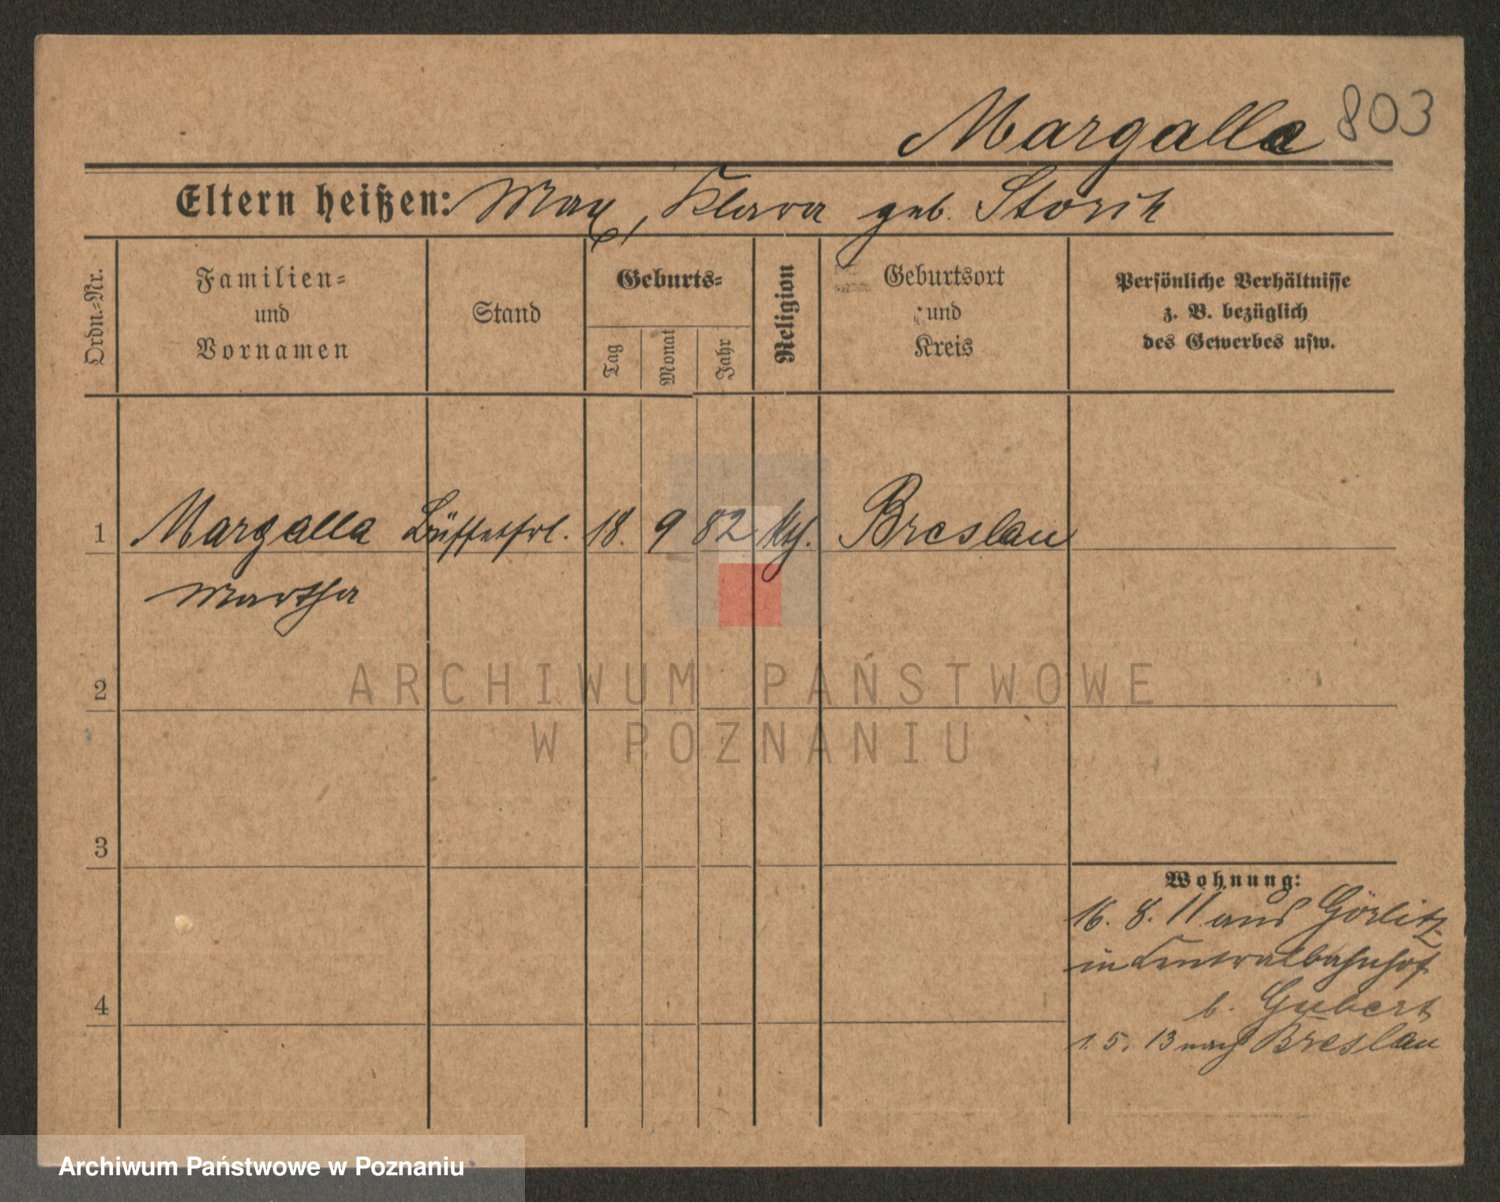 Margalla 803
Eltern heißen: Max, Klara geb. Storch
Ordn.-Nr.
Familien=
und
Vornamen
Stand
Geburts=
Tag
Monat
Jahr
Religion
Geburtsort
und
Kreis
Persönliche Verhältnisse
z. B. bezüglich
des Gewerbes usw.
1 Margalla Büffetfrl. 18. 9 82 kth. Breslau
Martha
2
ARCHIWUM PAŃSTWOWE
W POZNANIU
3
Wohnung:
16. 8. 11 aus Görlitz
in Centralbahnhof
4
b. Gubert
1. 5. 13 nach Breslau
Archiwum Państwowe w Poznaniu